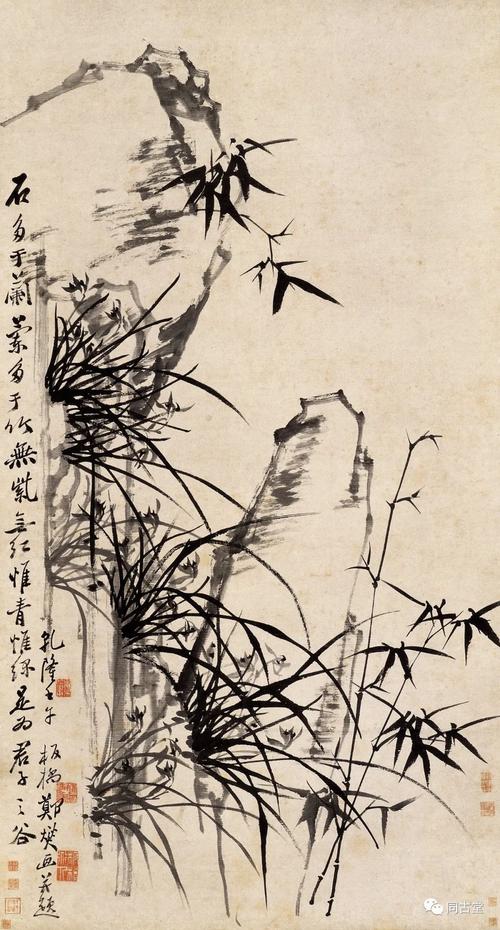 石多于蘭蘭多于竹無紫無紅惟青惟綠是為君子之谷
乾隆壬午板橋鄭燮画并題
同古堂